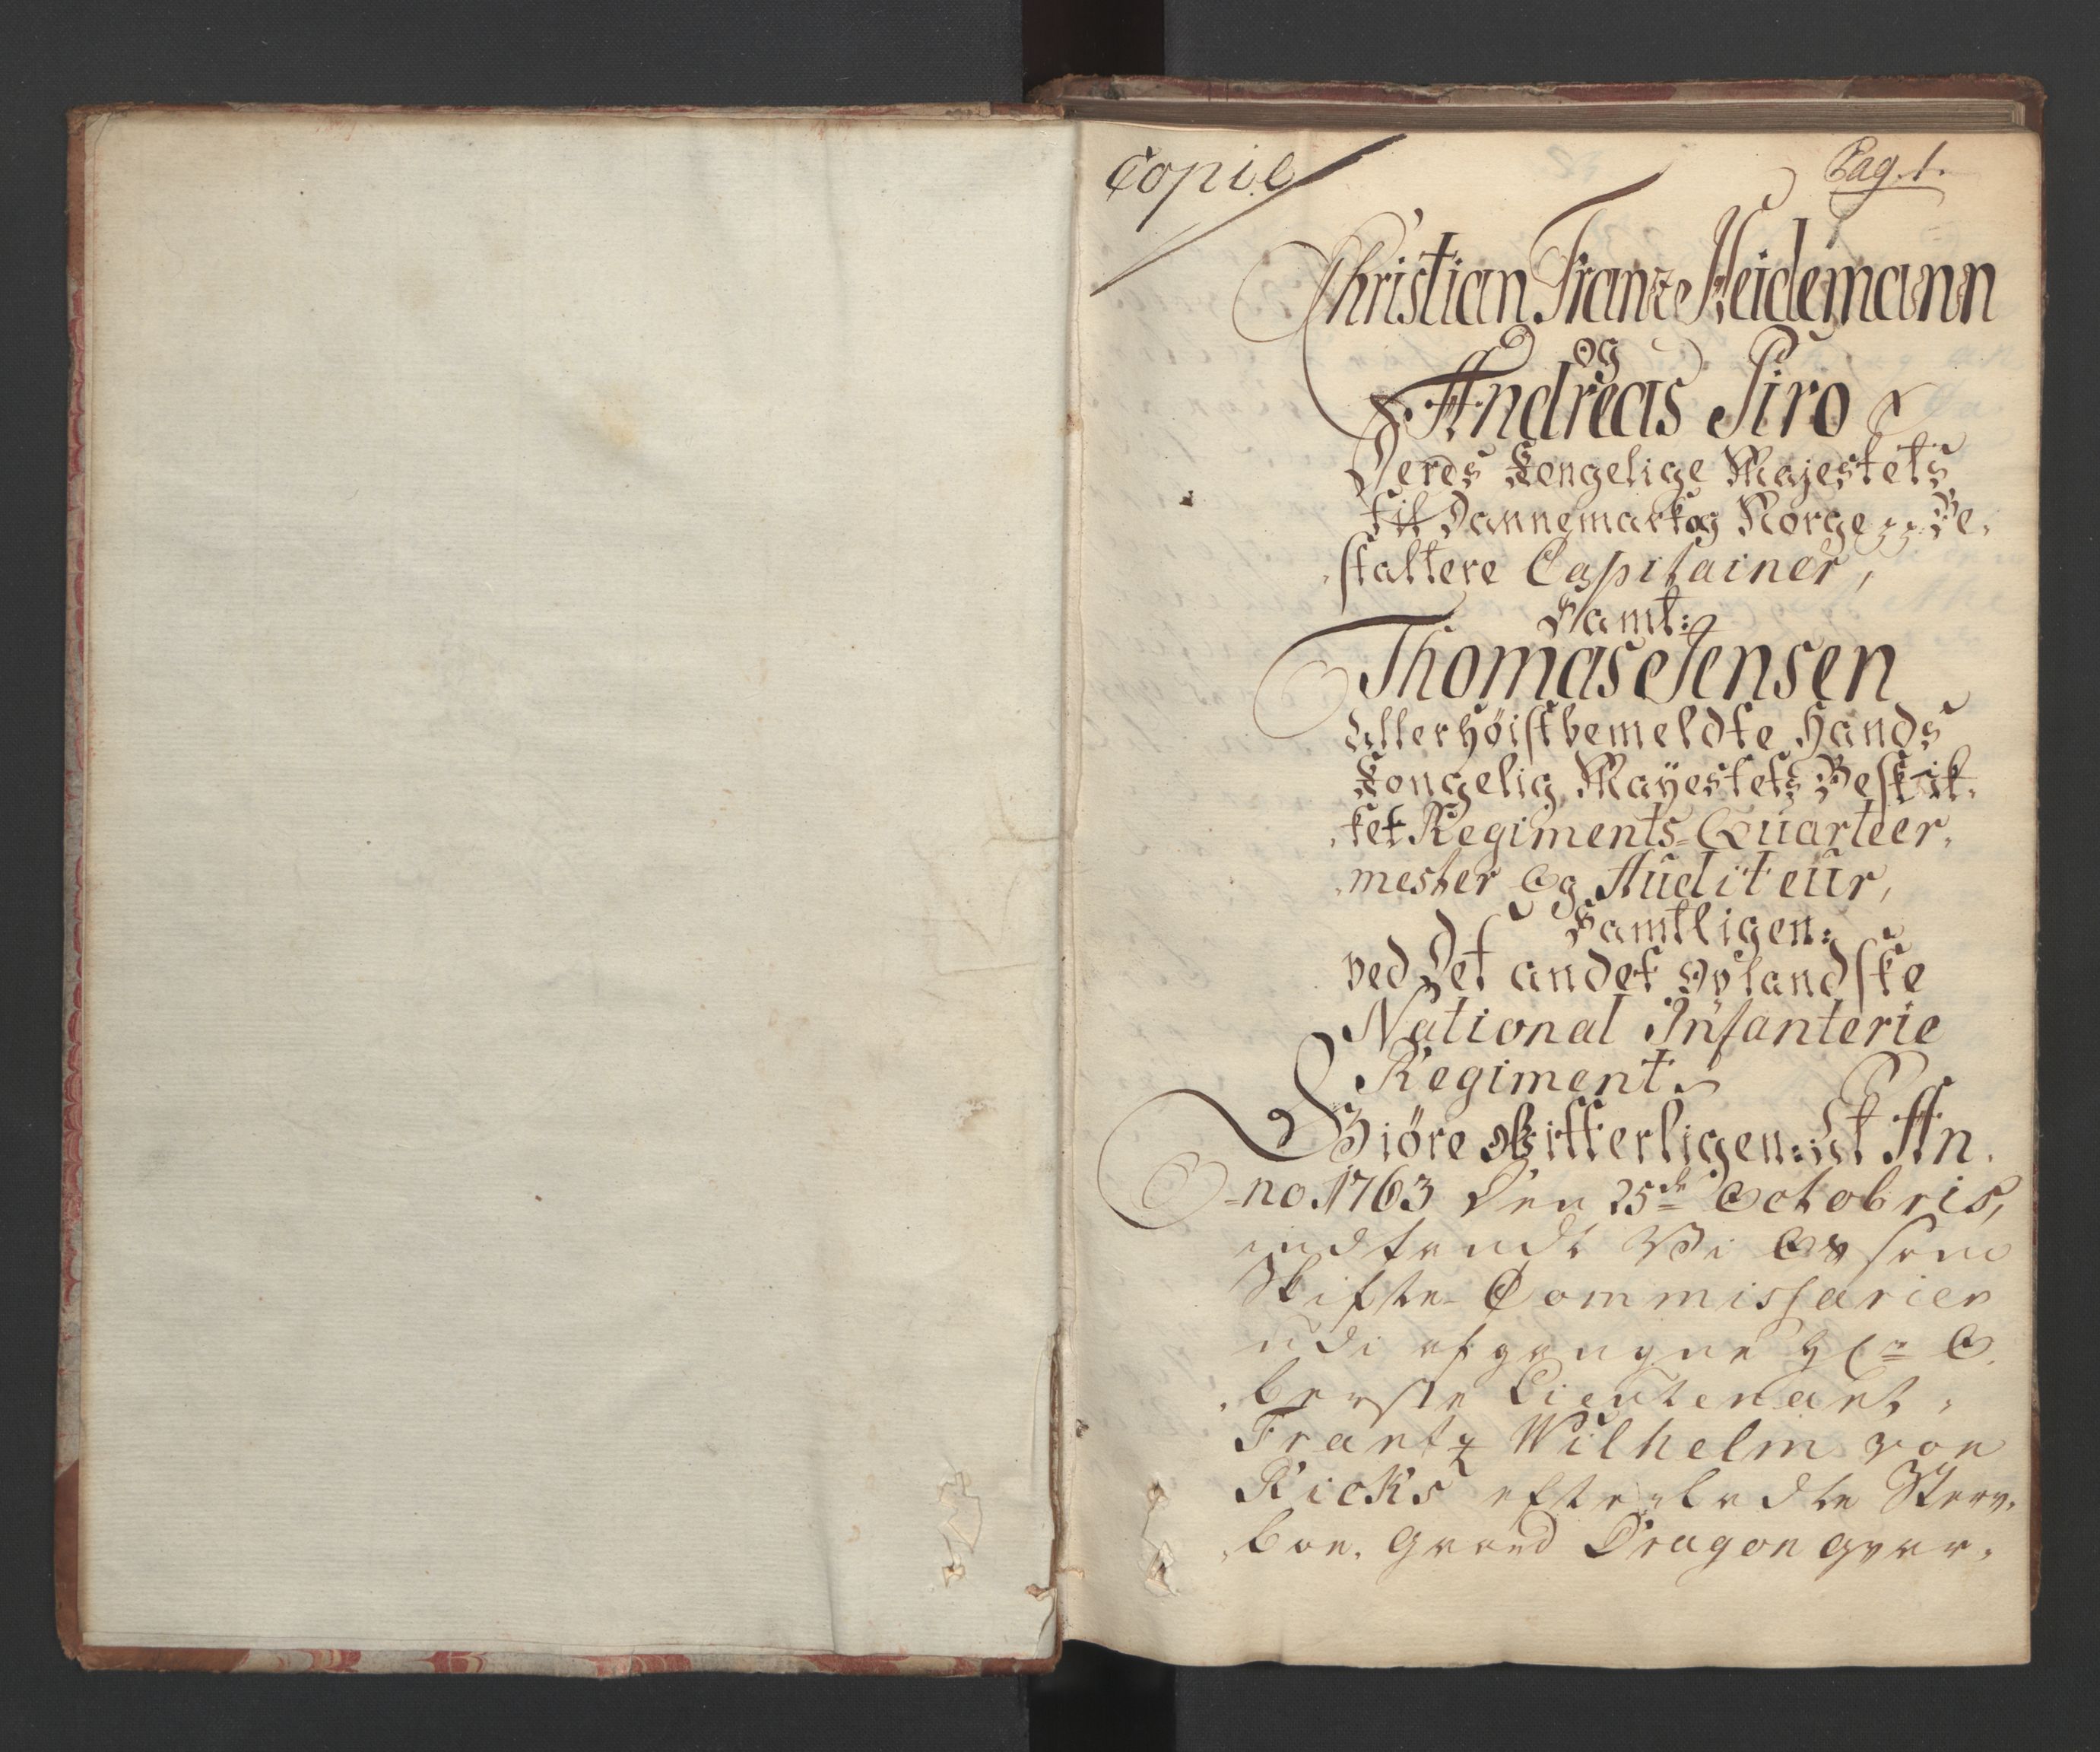 Copie
Pag. 1.
Christian Frantz Heidemann
og
Andreas Siro
Deres Kongelige Majestets
til Dannemark og Norge pp Be,
,staltere Capitainer,
Samt:
Thomas Jensen
Allerhöistbemeldte Hands
Kongelig Mayestets Beskik,
,ket Regiments-Quarteer,
,mester Og Auditeur,
Samtligen:
ved Det andet Oplandske
National Infanterie
Regiment.
Giöre Vitterligen: At An,
-no 1763 Den 25de Octobris,
indfandt Vi Os som
Skifte-Commissarier
udi afgangne Hr O,
,berste Lieutenant,
Frantz Wilhelm von
Ricks efterladte Sterv,
,boe. Gaard Dragon